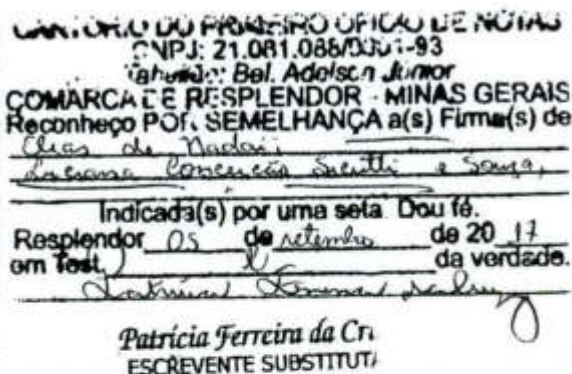 CARTÓRIO DO PRIMEIRO OFÍCIO DE NOTAS
CNPJ: 21.081.088/0001-93
Tabelião: Bel. Adelson Júnior
COMARCA DE RESPLENDOR - MINAS GERAIS
Reconheço POR SEMELHANÇA a(s) Firma(s) de
Elias de Nadai;
Conceição e Souza,
Indicada(s) por uma seta. Dou fé.
Resplendor 05 de setembro de 2017
em Test. da verdade.
Patrícia Ferreira da Cr
ESCREVENTE SUBSTITUT